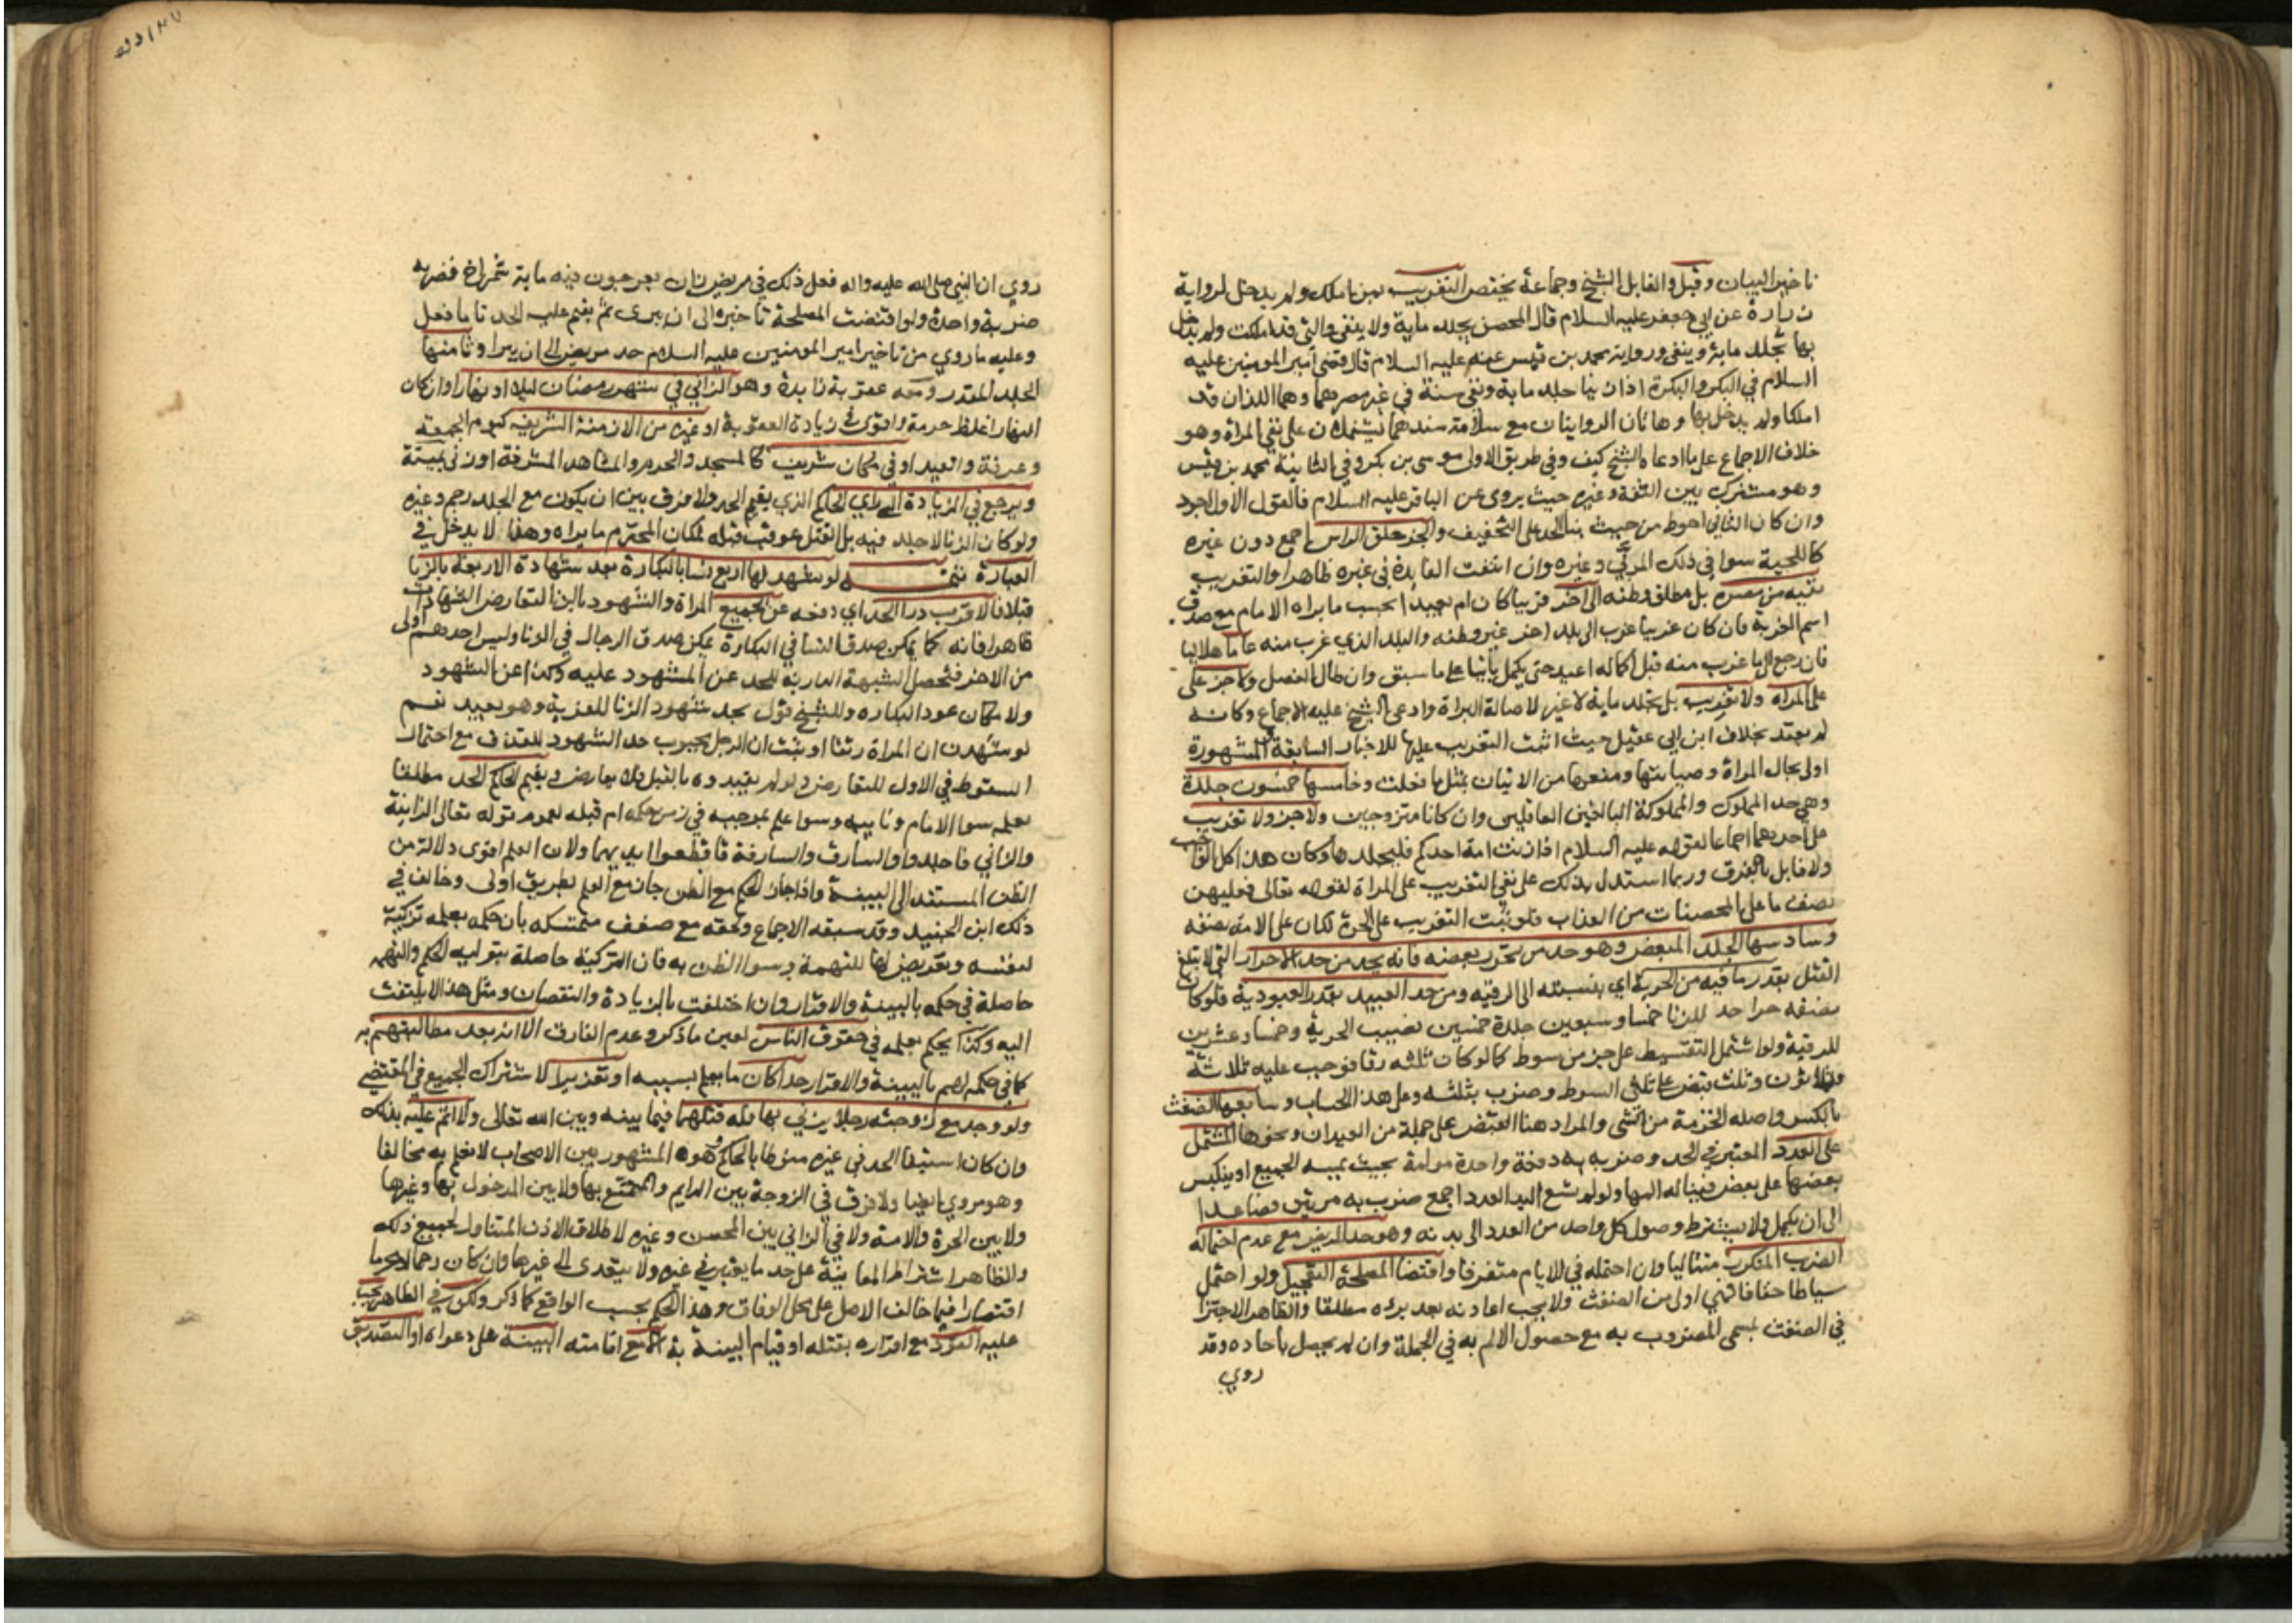 تاخير البيان وقيل والقايل الشيخ وجماعة يختص التغريب بمن املك ولم يدخل لرواية
زرارة عن ابي جعفر عليه السلام قال المحصن يجلد ماية ولا ينفى والتي قد املكت ولم يدخل
بها تجلد ماية وينفى ورواية محمد بن قيس عنه عليه السلام قال قضى امير المومنين عليه
السلام في البكر والبكرة اذا زنيا جلد ماية ونفي سنة في غير مصرهما وهما اللذان قد
املكا ولم يدخل بها وهاتان الروايتان مع سلامة سندهما يشتملان على نفي المراة وهو
خلاف الاجماع على ما ادعاه الشيخ كيف وفي طريق الاولى موسى بن بكر وفي الثانية محمد بن قيس
وهو مشترك بين الثقة وغيره حيث يروي عن الباقر عليه السلام فالقول الاول اجود
وان كان الثاني احوط من حيث بنا الحد على التخفيف والجز حلق الراس اجمع دون غيره
كاللحية سوا في ذلك المربي وغيره وان انتفت الفايدة في غيره ظاهرا والتغريب
نفيه من مصره بل مطلق وطنه الى اخر قريبا كان ام بعيدا بحسب ما يراه الامام مع صدق
اسم الغربة فان كان غريبا غرب الى بلد اخر غير وطنه والبلد الذي غرب منه عاما هلاليا
فان رجع الى ما غرب منه قبل اكماله اعيد حتى يكمل بانيا على ما سبق وان طال الفصل ولا جز على
على المراه ولا تغريب بل تجلد ماية لا غير لاصالة البراة وادعى الشيخ عليه الاجماع وكانه
لم يعتد بخلاف ابن ابي عقيل حيث اثبت التغريب عليها للاخبار السابقة والمشهورة
اولى بحال المراة وصيانتها ومنعها من الاتيان بمثل ما فعلت وخامسها خمسون جلدة
وهي حد المملوك والمملوكة البالغين العاقلين وان كانا متزوجين ولا جز ولا تغريب
على احدهما اجماعا لقوله عليه السلام اذا زنت امة احدكم فليجلدها وكان هذا كل الواجب
ولا قايل بالفرق وربما استدل بذلك على نفي التغريب على المراة لقوله تعالى فعليهن
نصف ما على المحصنات من العذاب فلو ثبت التغريب على الحرة لكان على الامة نصفه
وسادسها الجلد المبعض وهو حد من تحرر بعضه فانه يحد من حد الاحرار التي لا تبلغ
القتل بقدر ما فيه من الحرية اي بنسبته الى الرقية ومن حد العبيد بقدر العبودية فلو كان
نصفه حرا حد للزنا خمسا وسبعين جلدة خمسين لنصيب الحرية وخمسا وعشرين
للرقية ولو اشتمل التقسيط على جز من سوط كما لو كان ثلثه رقا فوجب عليه ثلاثة
وثلاثون وثلث قبض على ثلثي السوط وضرب بثلثه وعلى هذا الحساب وسابعها الضغث
بالكسر واصله الحزمة من الشي والمراد هنا القبض على جملة من العيدان ونحوها المشتمل
على العدد المعتبر في الحد وضربه به دفعة واحدة مولمة بحيث يمسه الجميع او ينكبس
بعضها على بعض فيناله المها ولو لم تسع اليد العدد اجمع ضرب به مرتين فصاعدا
الى ان يكمل ولا يشترط وصول كل واحد من العدد الى بدنه وهو حد المريض مع عدم احتماله
الضرب المتكرر متتاليا وان احتمله في الايام متفرقا واقتضا المصلحة التعجيل ولو احتمل
سياطا خفافا فهي اولى من الضغث ولا يجب اعادته بعد برئه مطلقا والظاهر الاجتزا
في الضغث بمسمى المضروب به مع حصول الالم به في الجملة وان لم يحصل باحاده وقد
روي
روي ان النبي صلى الله عليه واله فعل ذلك في مريض زان بعرجون فيه ماية شمراخ فضربه
ضربة واحدة ولو اقتضت المصلحة تاخيره الى ان يبرى ثم يقيم عليه الحد تاما فعل
وعليه ما روي من تاخير امير المومنين عليه السلام حد مريض الى ان يبرا وثامنها
الجلد المقدر ومعه عقوبة زايدة وهو الزاني في شهر رمضان ليلا او نهارا وان كان
النهار اغلظ حرمة واقوى في زيادة العقوبة او غيره من الازمنة الشريفه كيوم الجمعة
وعرفة والعيد او في مكان شريف كالمسجد والحرم والمشاهد المشرفة او زنى بميتة
ويرجع في الزيادة الى راي الحاكم الذي يقيم الحد ولا فرق بين ان يكون مع الجلد رجم وغيره
ولو كان الزنا لا جلد فيه بل القتل عوقب قبله لمكان المحترم ما يراه وهذا لا يدخل في
العبارة تتمة لو شهد لها اربع نسا بالبكارة بعد شهادة الاربعة بالزنا
قبلا فالاقرب درا الحد اي دفعه عن الجميع المراة والشهود بالزنا لتعارض الشهادات
ظاهرا فانه كما يمكن صدق النسا في البكارة يمكن صدق الرجال في الزنا وليس احدهم اولى
من الاخر فتحصل الشبهة الدارئة للحد عن المشهود عليه وكذا عن الشهود
ولامكان عود البكاره وللشيخ قول بحد شهود الزنا للفرية وهو بعيد نعم
لو شهدن ان المراة رتقا او ثبت ان الرجل مجبوب حد الشهود للقذف مع احتمال
السقوط في الاول للتعارض ولو لم يقيدوه بالقبل فلا تعارض ويقيم الحاكم الحد مطلقا
بعلمه سوا الامام ونايبه وسوا علم بموجبه في زمن حكمه ام قبله لعموم قوله تعالى الزانية
والزاني فاجلدوا والسارق والسارقة فاقطعوا ايديهما ولان العلم اقوى دلالة من
الظن المستند الى البينة واذا جاز الحكم مع الظن جاز مع العلم بطريق اولى وخالف في
ذلك ابن الجنيد وقد سبقه الاجماع ولحقه مع ضعف متمسكه بان حكمه بعلمه تزكية
لنفسه وتعريض لها للتهمة وسوا الظن به فان التزكية حاصلة بتوليه الحكم والتهمه
حاصلة في حكمه بالبينة والاقرار وان اختلفت بالزيادة والنقصان ومثل هذا لا يلتفت
اليه وكذا يحكم بعلمه في حقوق الناس لعين ما ذكر وعدم الفارق الا انه بعد مطالبتهم به
كما في حكمه لهم بالبينة والاقرار حدا كان ما يعلم بسببه او تعزيرا لاشتراك الجميع في المقتضي
ولو وجد مع زوجته رجلا يزني بها فله قتلهما فيما بينه وبين الله تعالى ولا اثم عليه بذلك
وان كان استيفا الحد في غيره منوطا بالحاكم هو المشهور بين الاصحاب لا نعلم به مخالفا
وهو مروي ايضا ولا فرق في الزوجة بين الدايم والمتمتع بها ولا بين المدخول بها وغيرها
ولا بين الحرة والامة ولا في الزاني بين المحصن وغيره لاطلاق الاذن المتناول لجميع ذلك
والظاهر اشتراط المعاينة على حد ما يعتبر في غيره ولا يتعدى الى غيرها وان كان رحما او محرما
اقتصارا فيما خالف الاصل على محل الوفاق وهذا الحكم بحسب الواقع كما ذكر ولكن في الظاهر يجب
عليه القود مع اقراره بقتله او قيام البينة به الا مع اقامته البينة على دعواه او التصديق